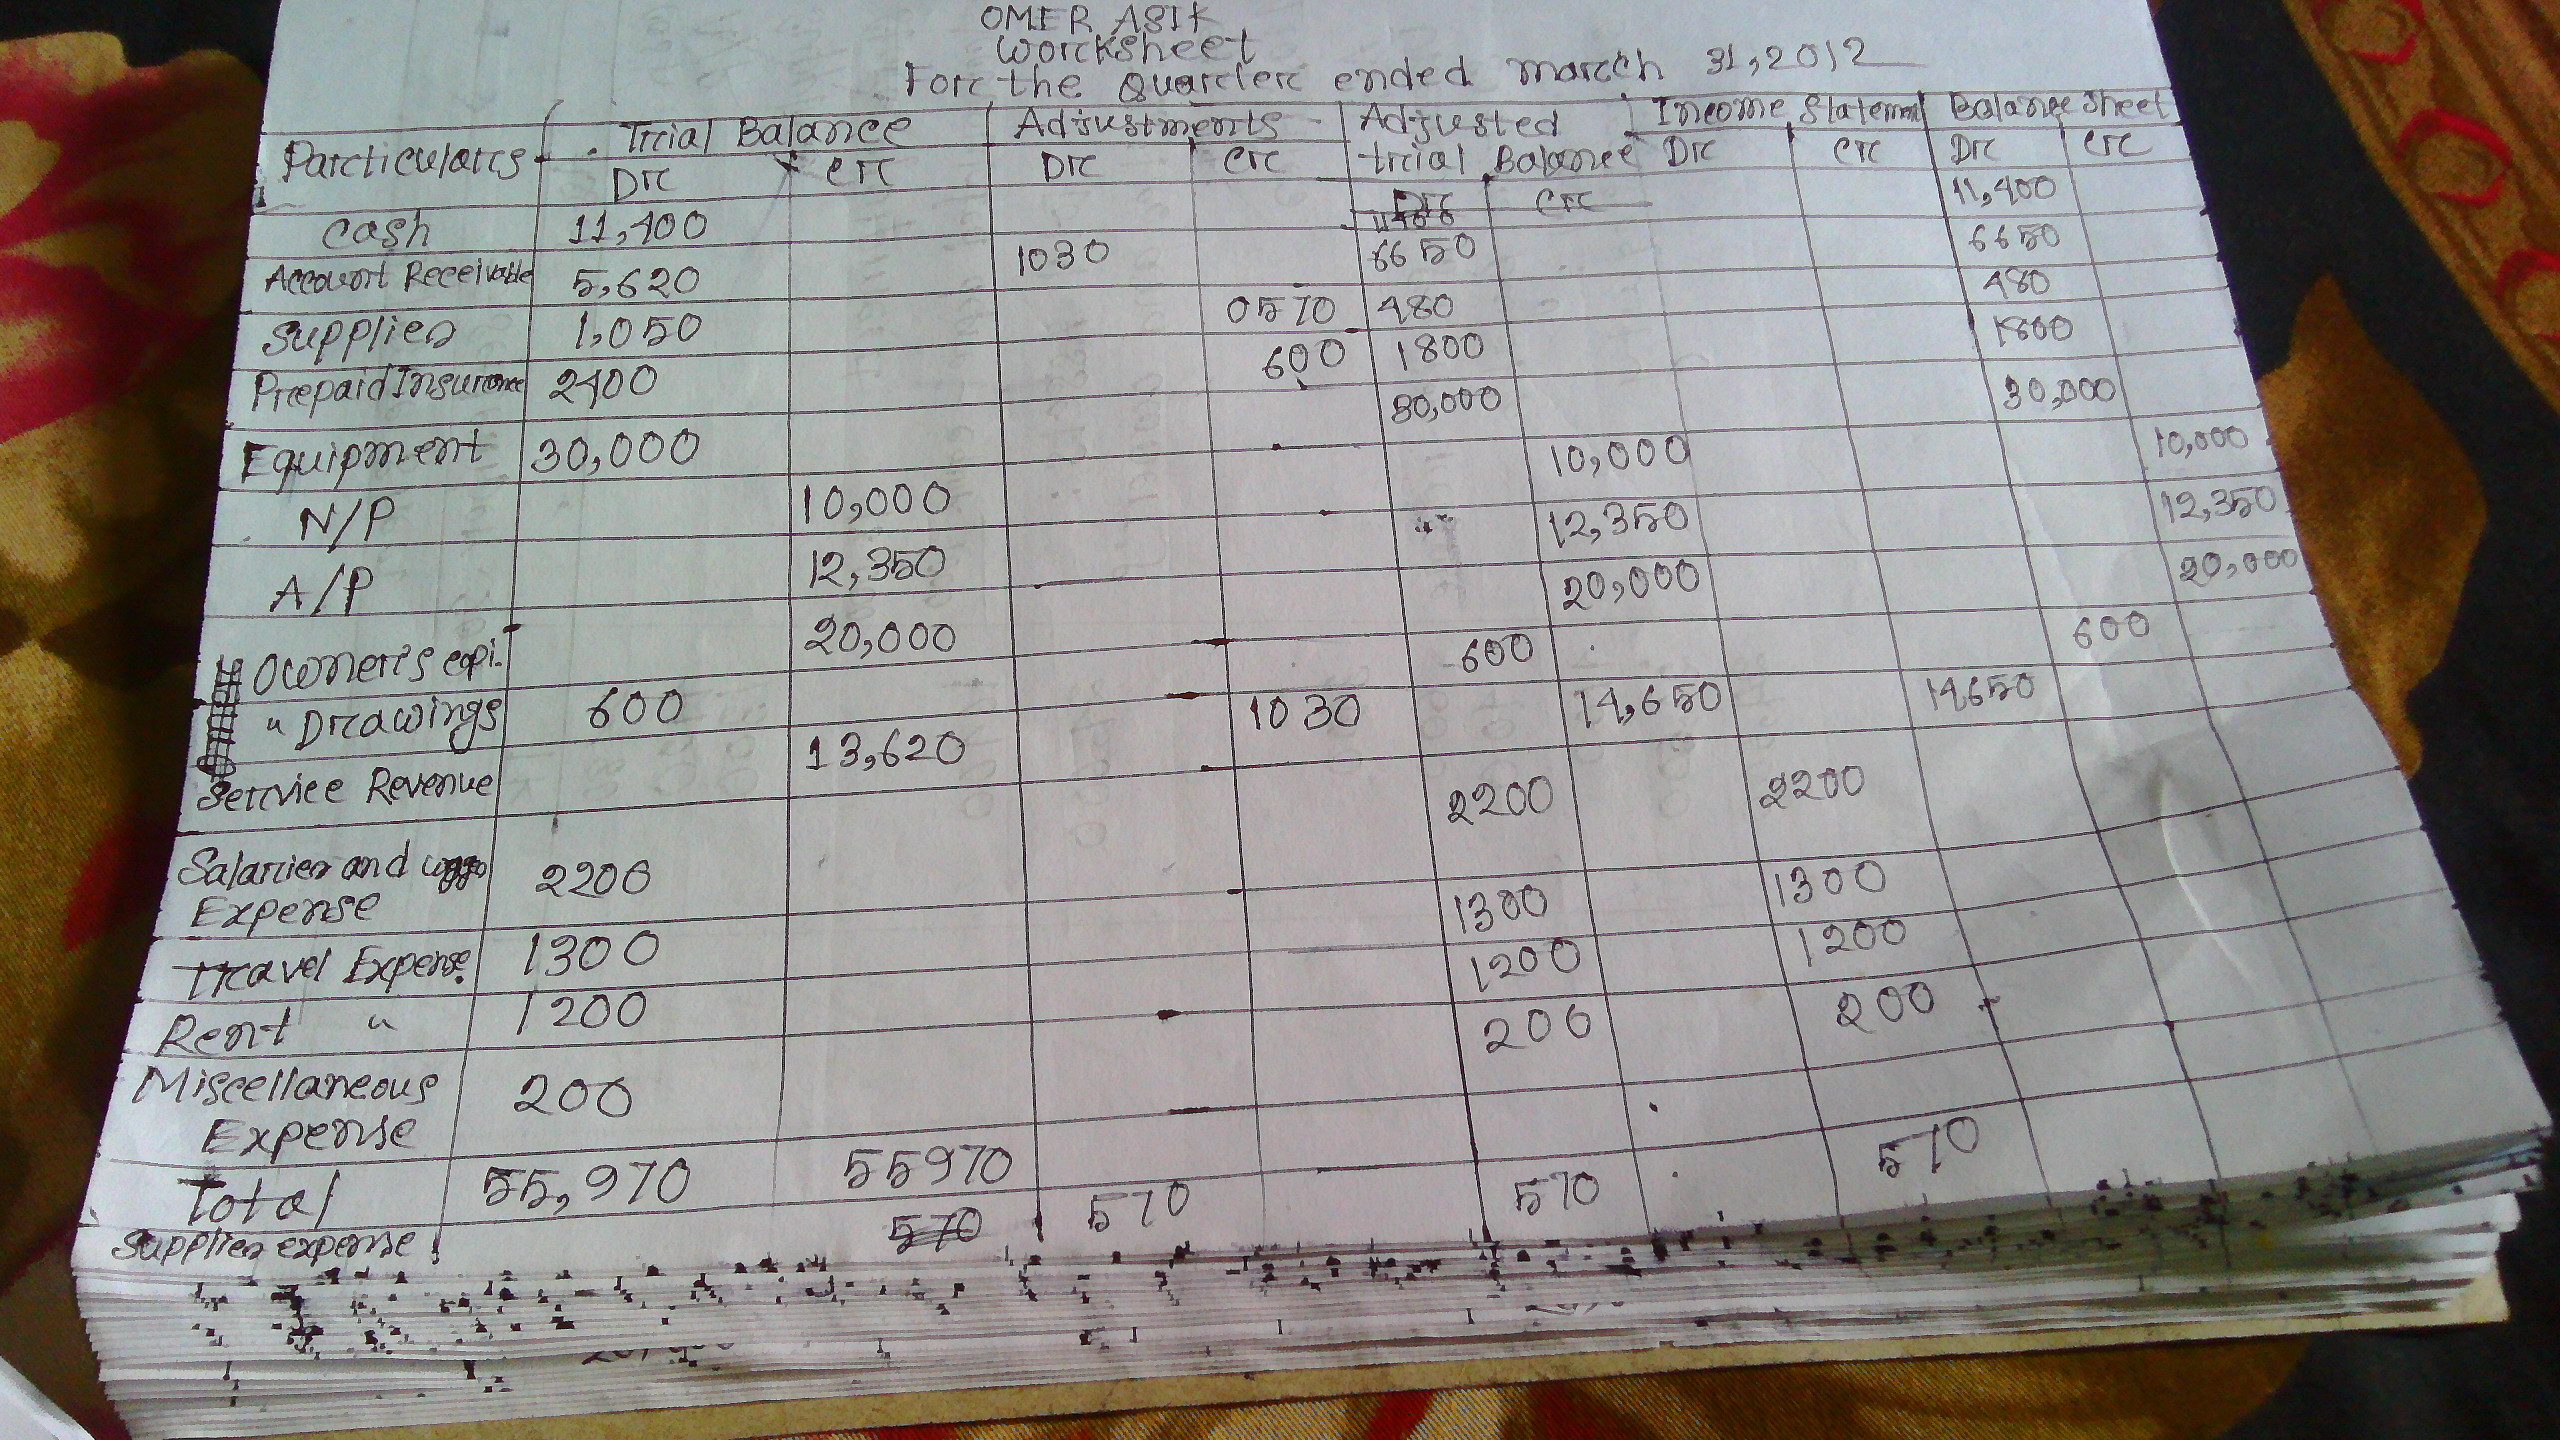 OMER ASIK
Worksheet
For the Quarter ended march 31,2012
Particulars Trial Balance Adjustments Adjusted trial Balance Income Statement Balance Sheet
Dr Cr Dr Cr Dr Cr Dr Cr Dr Cr
Cash 11,400 11400 11,400
Account Receivable 5,620 1030 6650 6650
Supplies 1,050 0570 480 480
Prepaid Insurance 2400 600 1800 1800
Equipment 30,000 30,000 30,000
N/P 10,000 10,000 10,000
A/P 12,350 12,350 12,350
Owner's capi. 20,000 20,000 20,000
" Drawings 600 600 600
Service Revenue 13,620 1030 14,650 14,650
Salaries and wages
Expense 2200 2200 2200
Travel Expense. 1300 1300 1300
Rent " 1200 1200 1200
Miscellaneous
Expense 200 200 200
Total 55,970 55970
Supplies expense 570 570 570 570